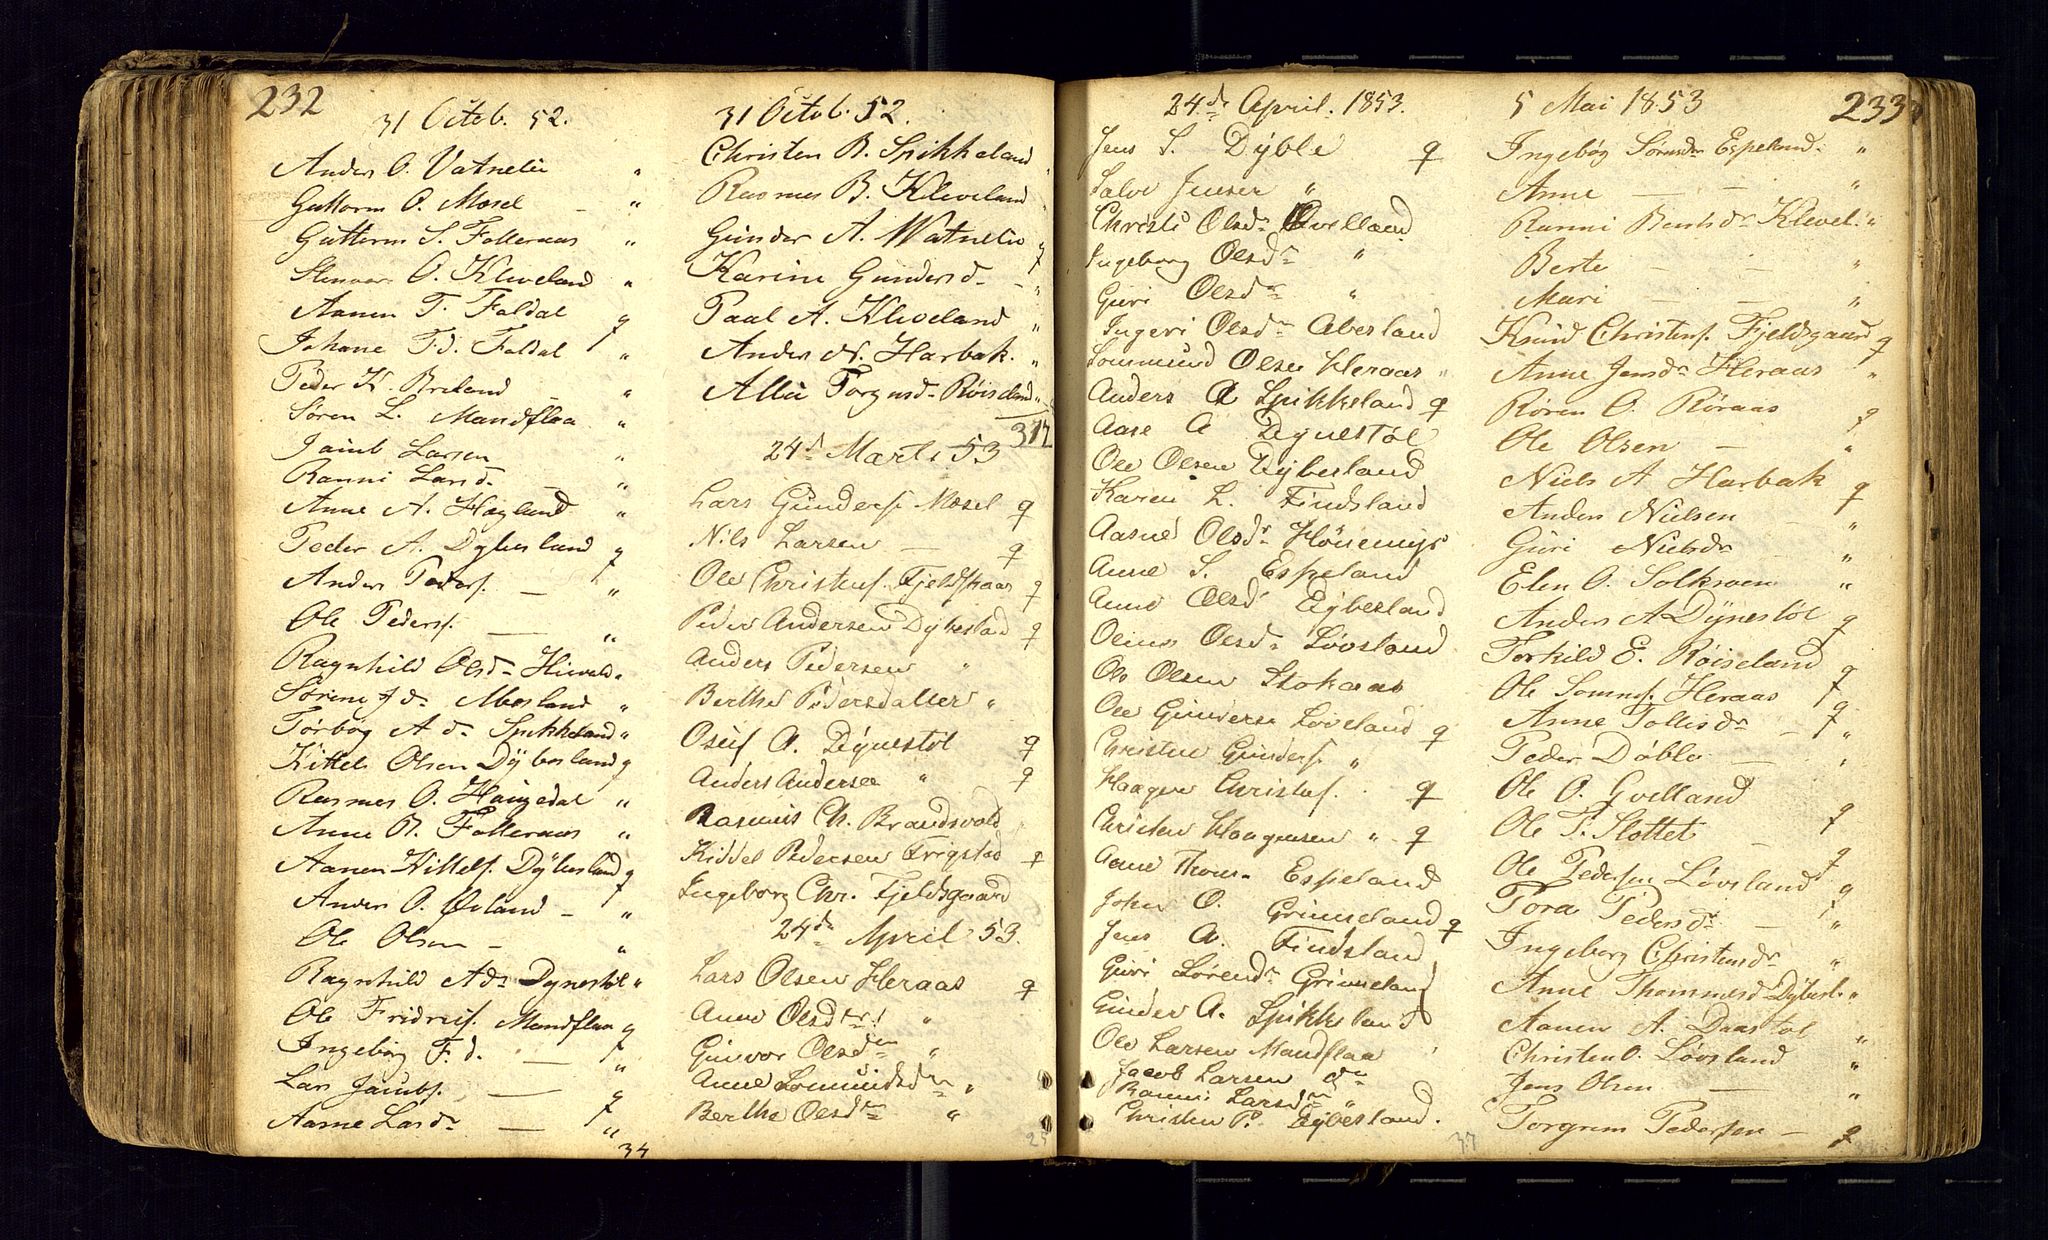 232
31 Octob. 52.
Anders O. Vatnelie "
Guttorm O. Mosel - "
Guttorm S. Folleraas "
Stenvor O. Kleveland "
Aanen T. Faldal q
Johane T. d. Faldal "
Peder K. Breland "
Søren L. Mandflaa "
Jacob Larsen - "
Ranni Larsd. - "
Anne A. Hagland "
Peder A. Dybesland q
Anders Peders. - "
Ole Peders. - "
Ragnhild Olsd. "
Sørine J d. Abesland "
Torbog A d. Spikkeland "
Kittel Olsen Dÿbesland q
Rasmus O. Haugedal "
Anne B. Folleraas "
Aanen Kittels. Dÿbesland q
Anders O. Øvland - "
Ole Olsen - "
Ragnhild A d. Dynestøl "
Ole Fridrics. Mandflaa q
Ingebörg F. d. - "
Lars Jacobs. - q
Aasne Larsd. - "
34
31 Octob. 52.
Christen B. Spikkeland "
Rasmus B. Kleveland "
Gunder A. Watnelie q
Karine Gundersd. - "
Paal A. Kleveland "
Anders N. Harbak. "
Allie Torgusd. Røiseland "
312
24d. Marts 53
Lars Gunders. Mosel q
Nils Larsen - q
Ole Christens. Fjeldsgaar q
Peder Andersen Dybesland q
Anders Pedersen "
Berthe Pedersdatter "
Osuf A. Dÿnestøl q
Anders Andersen " q
Rasmus Ch. Brandsvold "
Kiddel Pedersen Frigstad q
Ingeborg Chr. Fjeldsgaard
24de April 53.
Lars Olsen Heraas q
Anne Olsdtr. "
Gunvor Olsdn "
Anne Lomundsdn "
Berthe Olsdn "
25
24de April. 1853.
Jens S. Dÿble q
Salve Jensen "
Christi Olsdn Qvelland
Ingeborg Olsdn "
Guri Olsdn "
Ingeri Olsdn Abesland
Lommund Olsen Heraas "
Anders A Spikkeland q
Aase A Dÿnestøl
Ole Olsen Dÿbesland
Karen L. Findsland
Aasne Olsdr
Anne S. Espeland
Anne Olsd Dÿbesland
Olene Olsdn Løvsland
Ole Olsen Stokaas
Ole Gunders. Løveland q
Christen Gunders. "
Haagen Christens. q
Christen Haagensen " q
Anne Thom. Espeland
John O. Grimeland q
Jens A. Findsland
Guri Sørensdn Grimeland
Gunder A. Spikkeland
Ole Larsen Mandflaa "
Jacob Larsen do
Ranni Larsdn "
Christen P. Dÿbesland.
37
5 Mai 1853
233
Ingebög Sørnsdr Espeland "
Anne - - "
Ranni Bentsdr Klevel. "
Berte - - "
Mari - - "
Knud Christens. Fjeldsgaard q
Anne Jensdr Heraas "
Røren O. Røraas q
Ole Olsen - "
Niels A Harbak q
Anders Nielsen - "
Guri Nielsdr - "
Elen O. Solkraen "
Anders A Dÿnestøl q
Torkild E. Røiseland q
Ole Somms. Heraas q
Anne Tollisdr - "
Peder Døble - "
Ole O. Qvelland q
Ole P. Slottet - q
Ole Pedersen Løvsland q
Tora Pedersdr - "
Ingeborg Christensdr "
Anne Thommesd. Dÿbesl. "
Aanen A. Daastøl "
Christen O. Løvsland "
Jens Olsen - "
Torgrim Pedersen - q